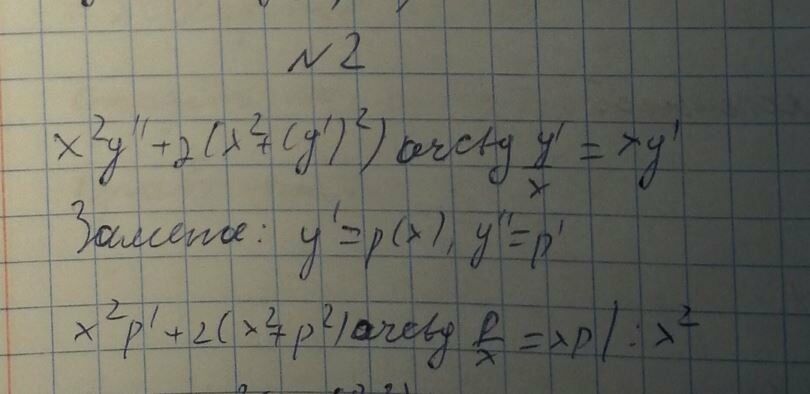 N2
x²y'' + 2(x² + (y')²) arctg y'/x = xy'
Замена: y' = p(x), y'' = p'
x²p' + 2(x² + p²) arctg p/x = xp | : x²